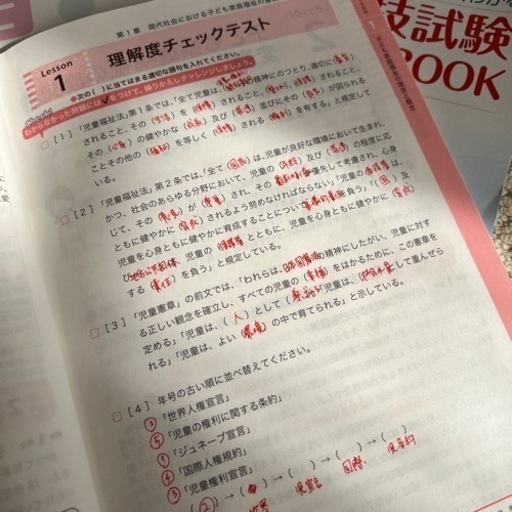 第1章 現代社会における子ども家庭福祉の
Lesson
1
理解度チェックテスト
●次の( )に当てはまる適切な語句を入れてください。
わからなかった問題には✓をつけて、繰りかえしチャレンジしましょう。
[1]「児童福祉法」第1条では、「全て児童は、の精神にのつとり、適切に(養育)
されること、その(生活)を(保障)されること、(愛され)、(保護)されること、
その(心身)の健やかな(成長)及び(発達)並びにその(自立)が図られる
ことその他の(福祉)を等しく(保障)される(権利)を有する」と規定して
いる。
[2]「児童福祉法」第2条では、「全て(国民)は、児童が良好な環境において生まれ、
かつ、社会のあらゆる分野において、児童の(年齢)及び(発達)の程度に応
じて、その(意見)が(尊重)され、その(最善の利益)が優先して考慮され、心身
ともに健やかに(育成)されるよう努めなければならない」「児童の(保護者)は、
児童を心身ともに健やかに育成することについて(第一義的責任)を負う」「(国)及
び(地方公共団体)は、児童の(保護者)とともに、児童を心身ともに健やかに(育成)
する(責任)を負う」と規定している。
[3]「児童憲章」の前文では、「われらは、(日本国憲法)の精神にしたがい、児童に対す
る正しい観念を確立し、すべての児童の(幸福)をはかるために、この憲章を
定める」「児童は、(人)として(尊ばれる)」「児童は、(社会の一員)として重んぜら
れる」「児童は、よい(環境)の中で育てられる」と示している。
[4] 年号の古い順に並べ替えてください。
「世界人権宣言」
⑤「児童の権利に関する条約」
①「ジュネーブ宣言」
④「国際人権規約」
③「児童権利宣言」
( )→( )→( )→( )→( )
世界
児宣言
国際
児条約
1
子ども家庭福祉の理念と概念
技試験
BOOK